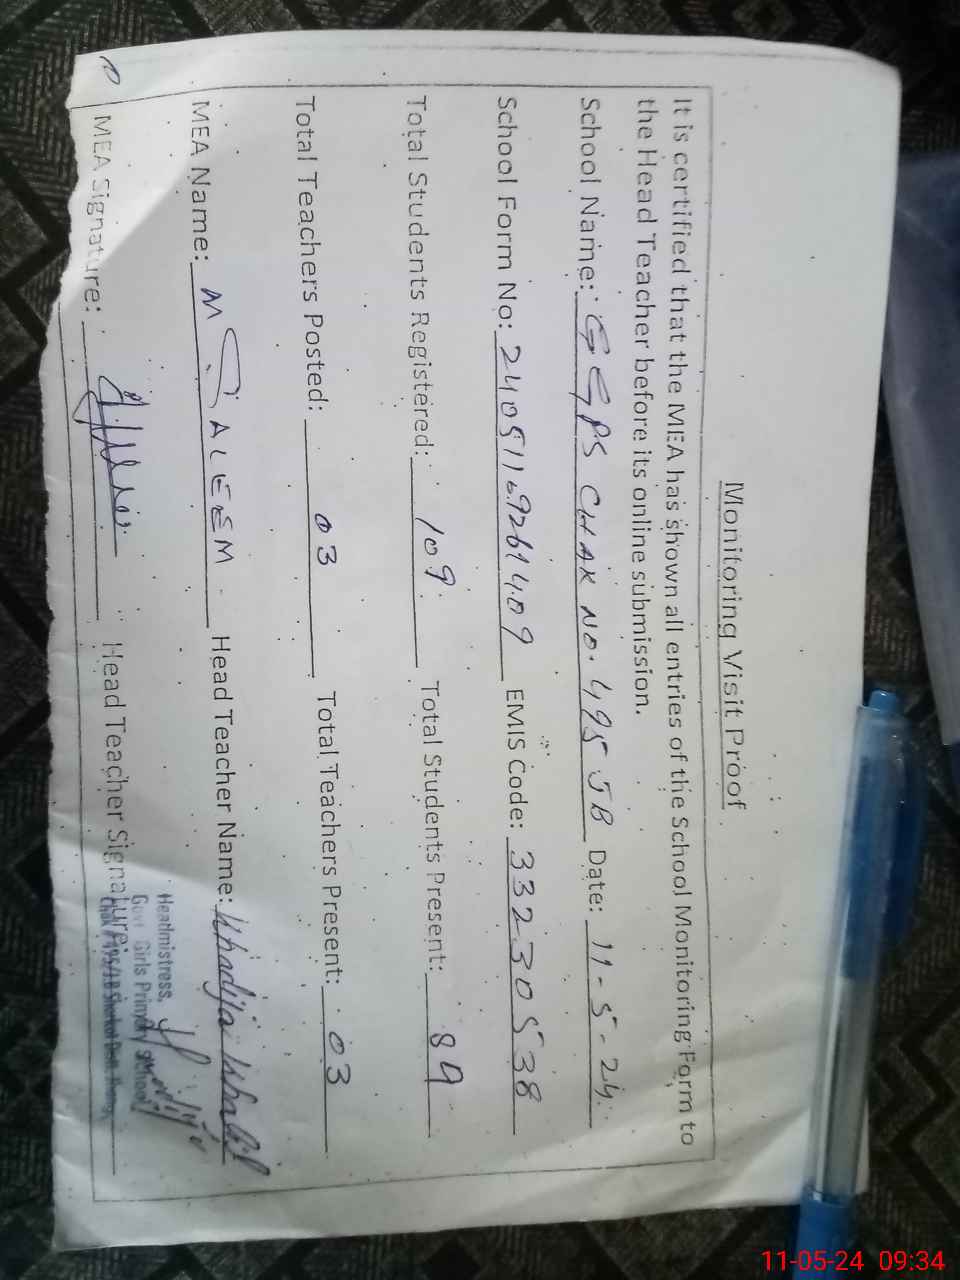 Monitoring Visit Proof
It is certified that the MEA has shown all entries of the School Monitoring Form to
the Head Teacher before its online submission.
School Name: GGPS CHAK NO. 495 JB Date: 11-5-24
School Form No: 24051169261409 EMIS Code: 33230538
Total Students Registered: 109 Total Students Present: 89
Total Teachers Posted: 03 Total Teachers Present: 03
MEA Name: M SALEEM Head Teacher Name: Khadija
MEA Signature: Head Teacher Signature:
Headmistress,
Govt Girls Primary School
Chak # 495/J.B
11-05-24 09:34